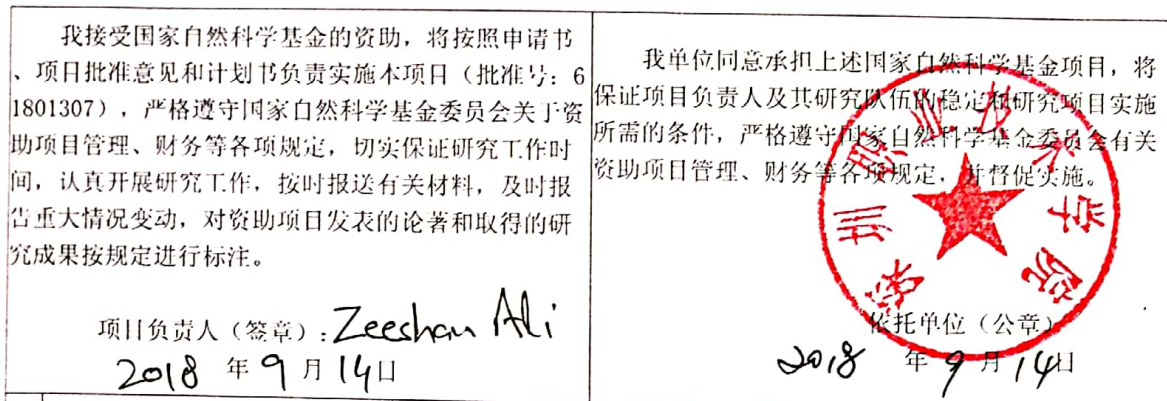 我接受国家自然科学基金的资助，将按照申请书
、项目批准意见和计划书负责实施本项目（批准号：6
1801307），严格遵守国家自然科学基金委员会关于资
助项目管理、财务等各项规定，切实保证研究工作时
间，认真开展研究工作，按时报送有关材料，及时报
告重大情况变动，对资助项目发表的论著和取得的研
究成果按规定进行标注。
项目负责人（签章）：Zeeshan Ali
2018 年 9 月 14日
我单位同意承担上述国家自然科学基金项目，将
保证项目负责人及其研究队伍的稳定和研究项目实施
所需的条件，严格遵守国家自然科学基金委员会有关
资助项目管理、财务等各项规定，并督促实施。
深圳职业技术学院
依托单位（公章）
2018 年 9 月 14日